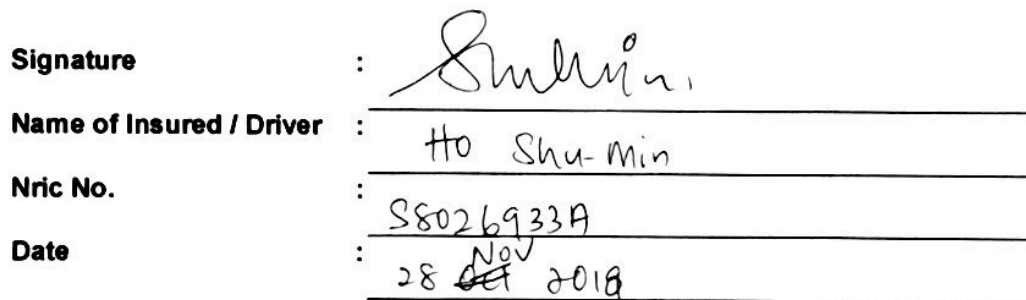 Signature : Shumin.
Name of Insured / Driver : Ho Shu-Min
Nric No. : S8026933A
Date : 28 Nov 2019